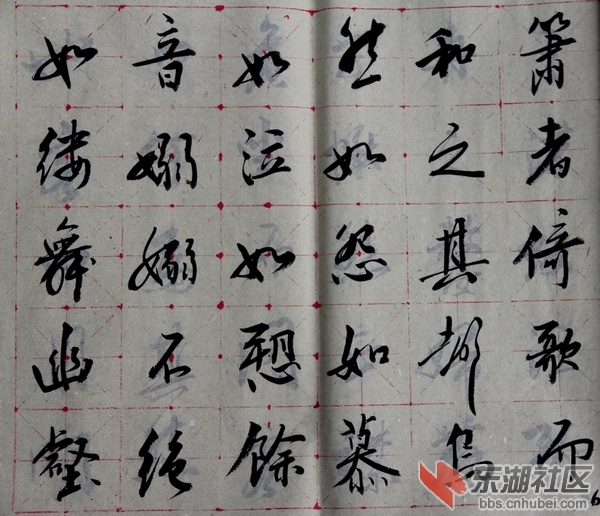 簫者倚歌而
和之其
然如怨如慕
如泣如愬餘
音嫋嫋不绝
如缕舞幽壑
东湖社区
bbs.cnhubei.com
6